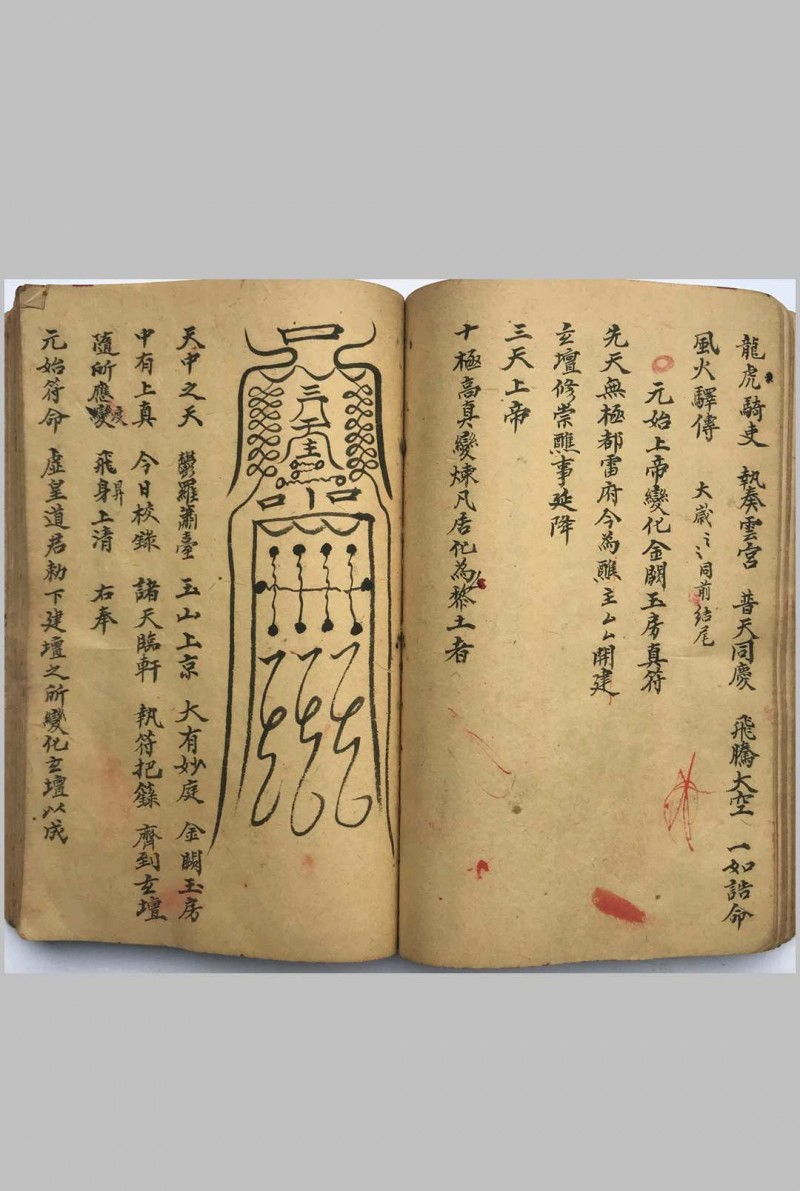 龍虎騎吏 執奏雲宮 普天同慶 飛騰太空 一如誥命
風火驛傳 大歲〻〻同前結尾
元始上帝變化金闕玉房真符
先天無極都雷府今為醮主厶厶開建
玄壇修崇醮事延降
三天上帝
十極高真變煉凡居化為黎土者
天中之天 鬱羅蕭臺 玉山上京 大有妙庭 金闕玉房
中有上真 今日校錄 諸天臨軒 執符把籙 齊到玄壇
隨所應變度 飛昇身上清 右奉
元始符命 虛皇道君勅下建壇之所變化玄壇以成